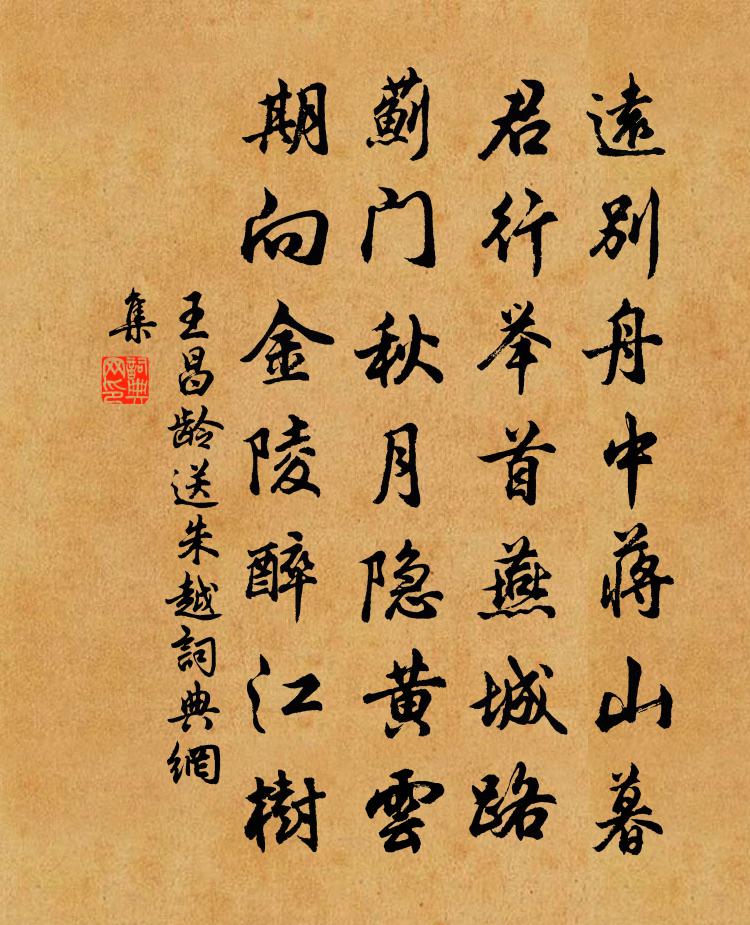 遠別舟中蔣山暮
君行举首燕城路
薊门秋月隐黄雲
期向金陵醉江樹
王昌龄送朱越詞典網
集
詞典网印